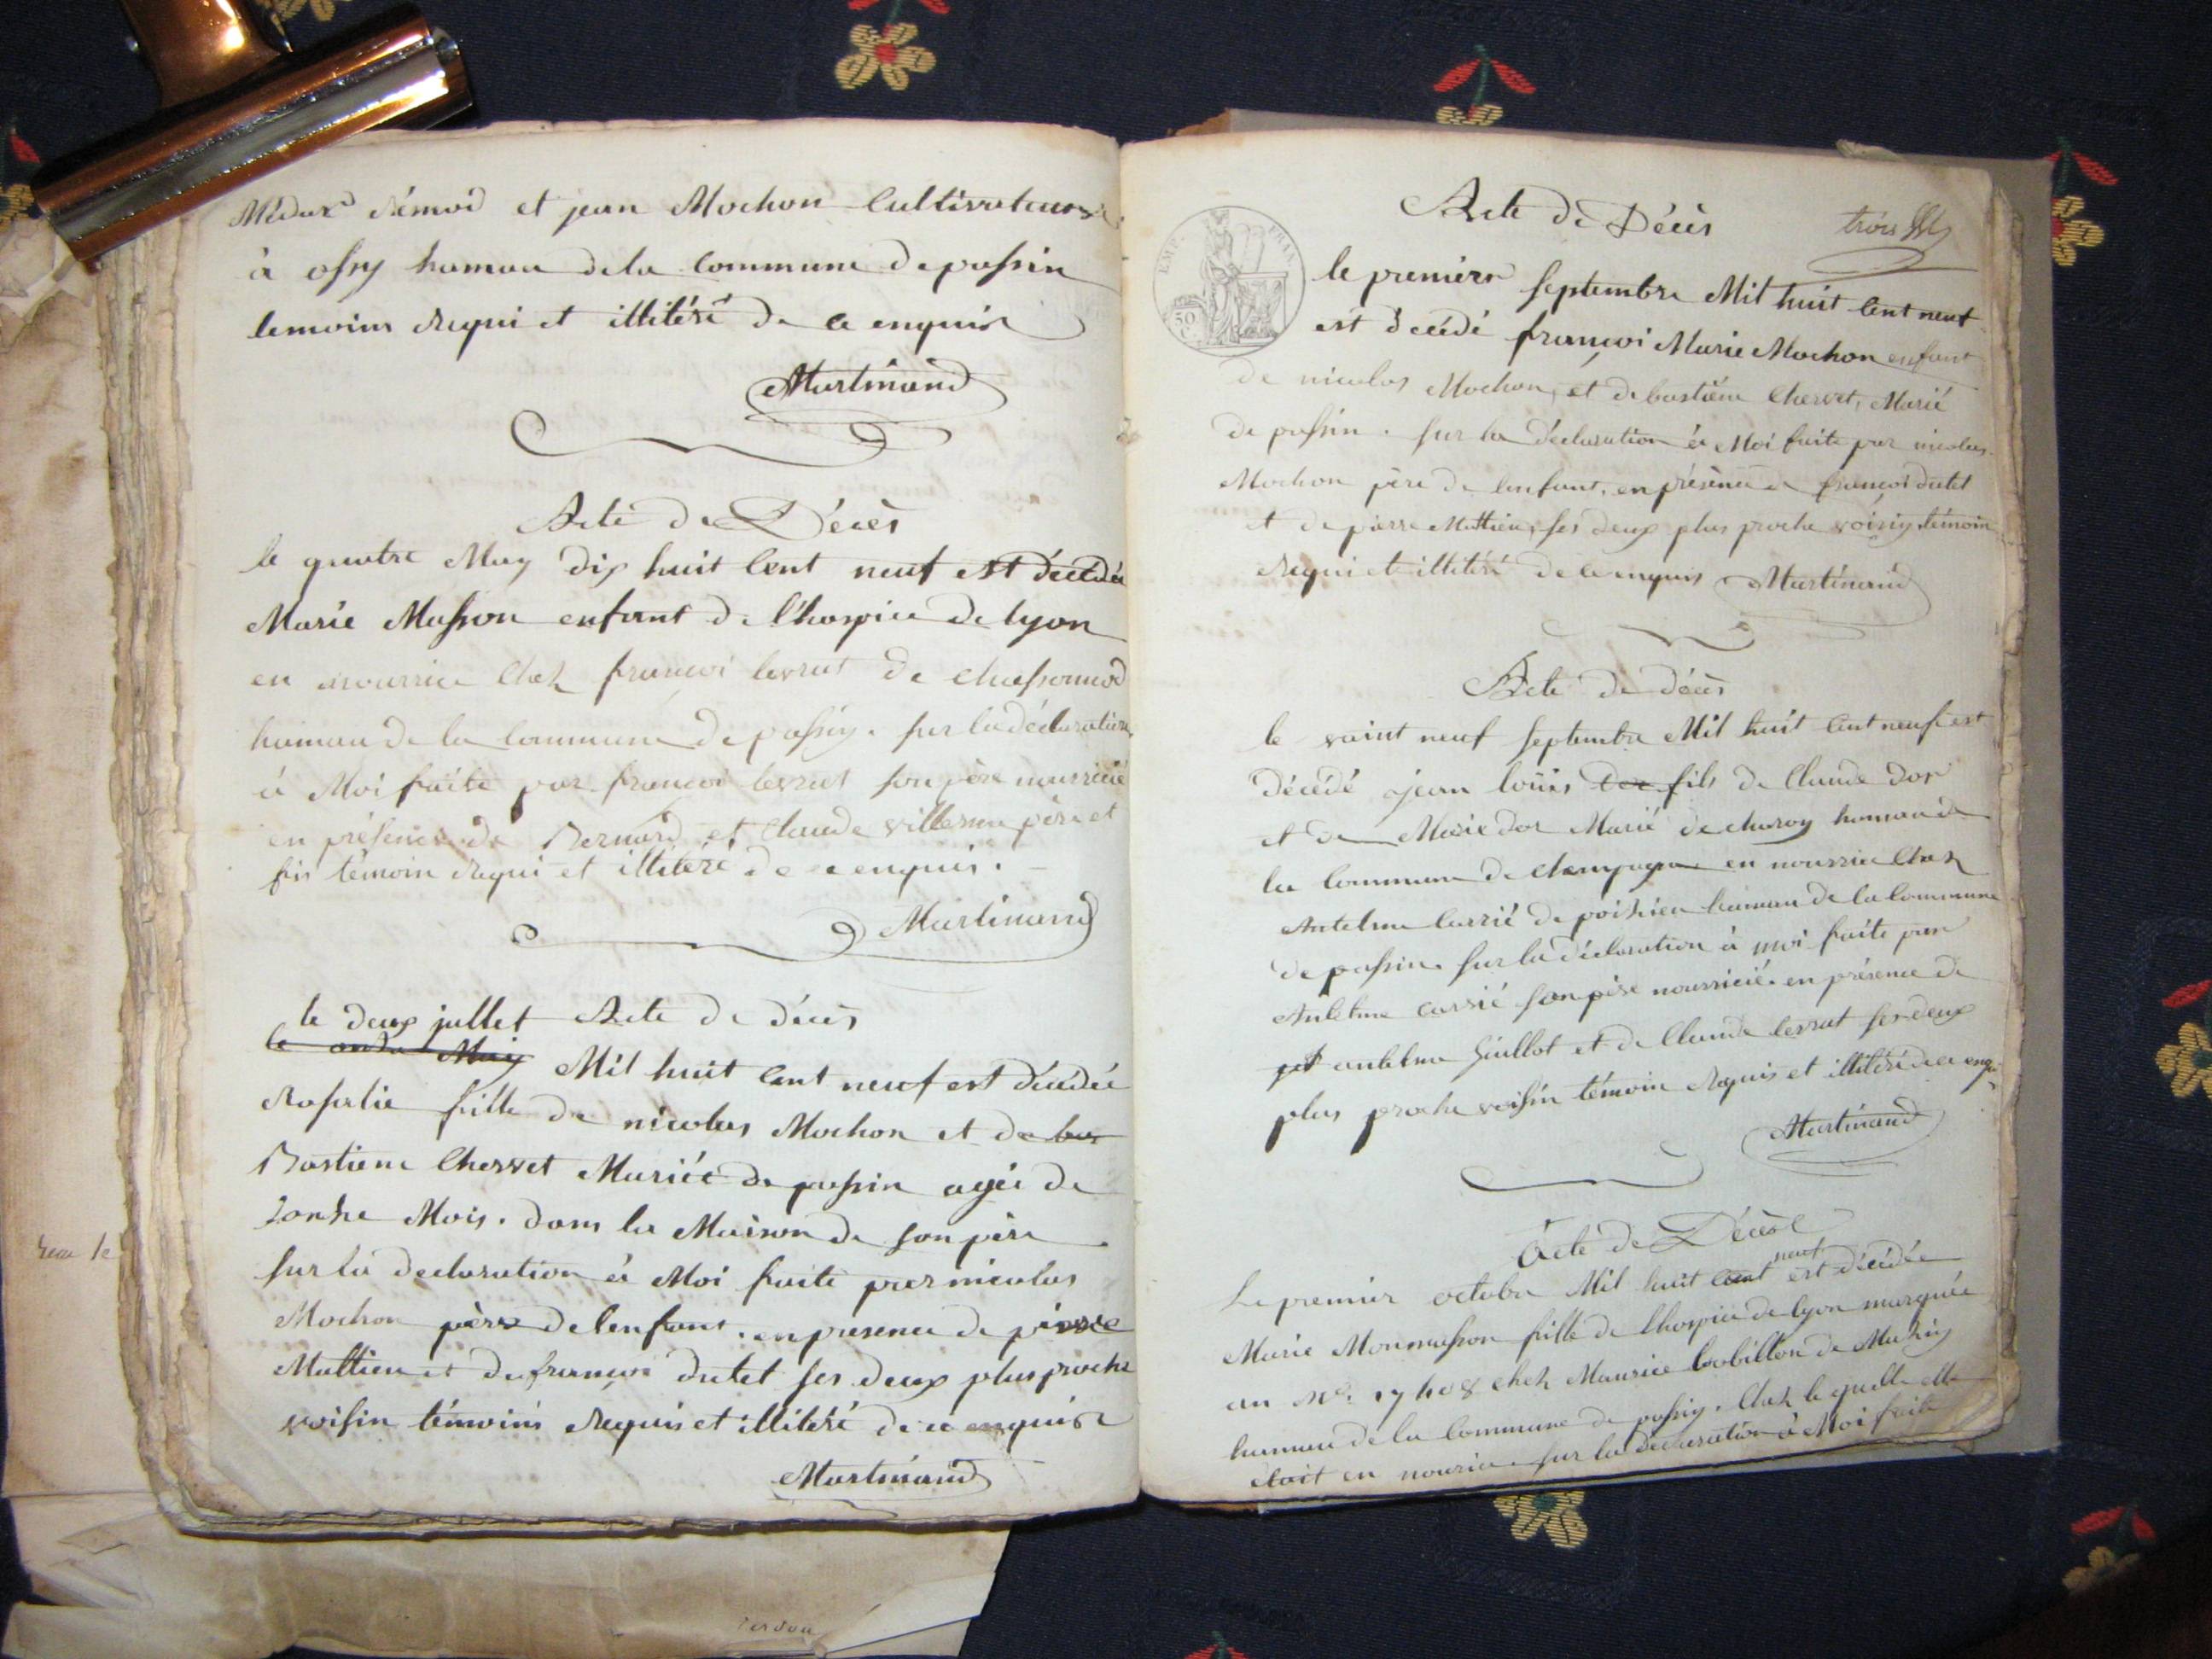 et jean Mochon Cultivateurs
à ossy hamau dela Commune de passin
temoins requi et illitéré de ce enquise
Martinand
Acte de Décès
le quatre May dix huit Cent neuf est décédée
Marie Masson enfant de l'hospice de lyon
en nourrice Chez françoi levrat de chassonod
hamau de la Commune de passin. sur la déclaration
à Moi faite par françoi levrat son père nourricié
en présence de Bernard et Claude villerme père et
fis témoin requi et illiteré de ce enquis.
Martinand
le deux jullet Acte de décès
le onze May Mil huit Cent neuf est décédée
Rosalie fille de nicolas Mochon et de bas
Bastiene Chervet Mariée de passin agée de
zonze Mois. dans la Maison de son père
sur la declaration à Moi faite par nicolas
Mochon père de lenfant. en presence de pierre
Mattieu et de françoi dutet ses deux plus proche
voisin témoins requis et illitéré de ce enquise
Martinand
Acte de Décès
EMP. FRAN.
50 C.
le premier septembre Mil huit Cent neuf
est décédé françoi Marie Mochon enfant
de nicolas Mochon, et de bastiene Chervet, Marié
de passin. sur la déclaration à Moi faite par nicolas
Mochon père de lenfant, en présence de françoi dutet
et de pierre Mattieu, ses deux plus proche voisin témoin
requi et illitéré de ce enquis Martinand
Acte de décès
le vaint neuf septembre Mil huit Cent neuf est
décédé jean loüis dor fils de Claude dor
et de Marie dor Marié de charoy hamau de
la Commune de Champagne en nourrice Chez
Antelme Carrié de poisieu hamau de la Commune
de passin. sur la déclaration à moi faite par
Antelme carrié son père nourricié. en présence de
antelme Guillot et de Claude levrat ses deux
plus proche voisin témoin requis et illitéré de ce enqui
Martinand
Acte de Décèse
neuf
Le premier octobre Mil huit Cent est décédée
Marie Monmasson fille de lhospice de lyon marquée
au N°. 17408 chez Maurice boobillon de Mazin
hamau de la Commune de passin. Chez le quelle elle
étoit en nourice sur la declaration à Moi faite